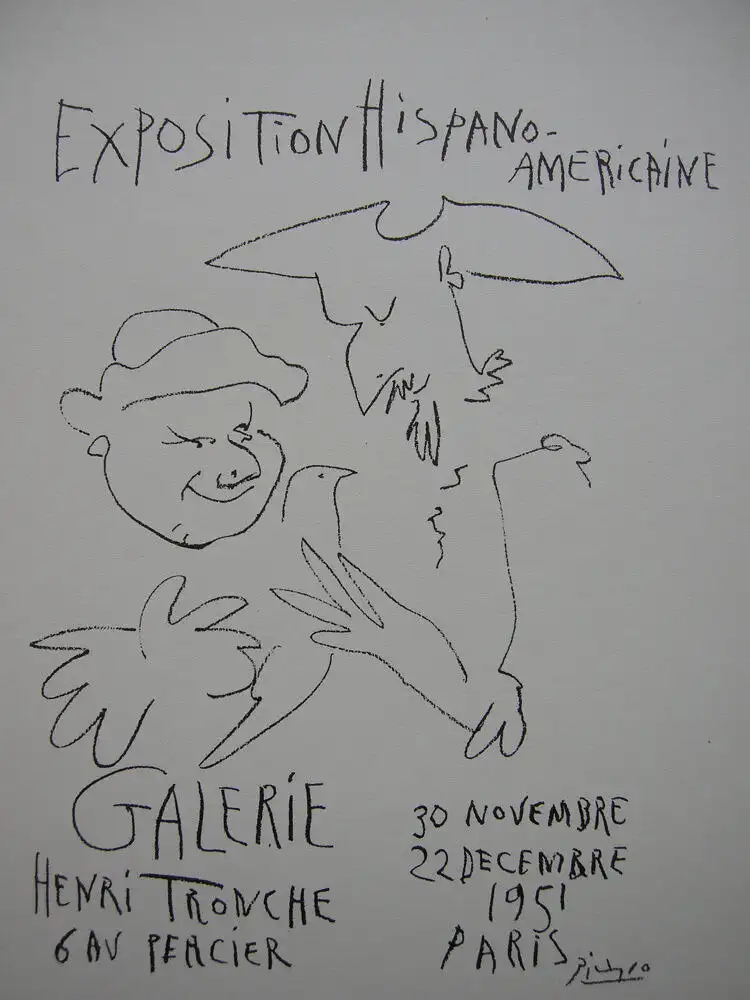 EXPOSITION HISPANO-
AMERICAINE
GALERIE
HENRI TRONCHE
6 AV PERCIER
30 NOVEMBRE
22 DECEMBRE
1951
PARIS
Picasso